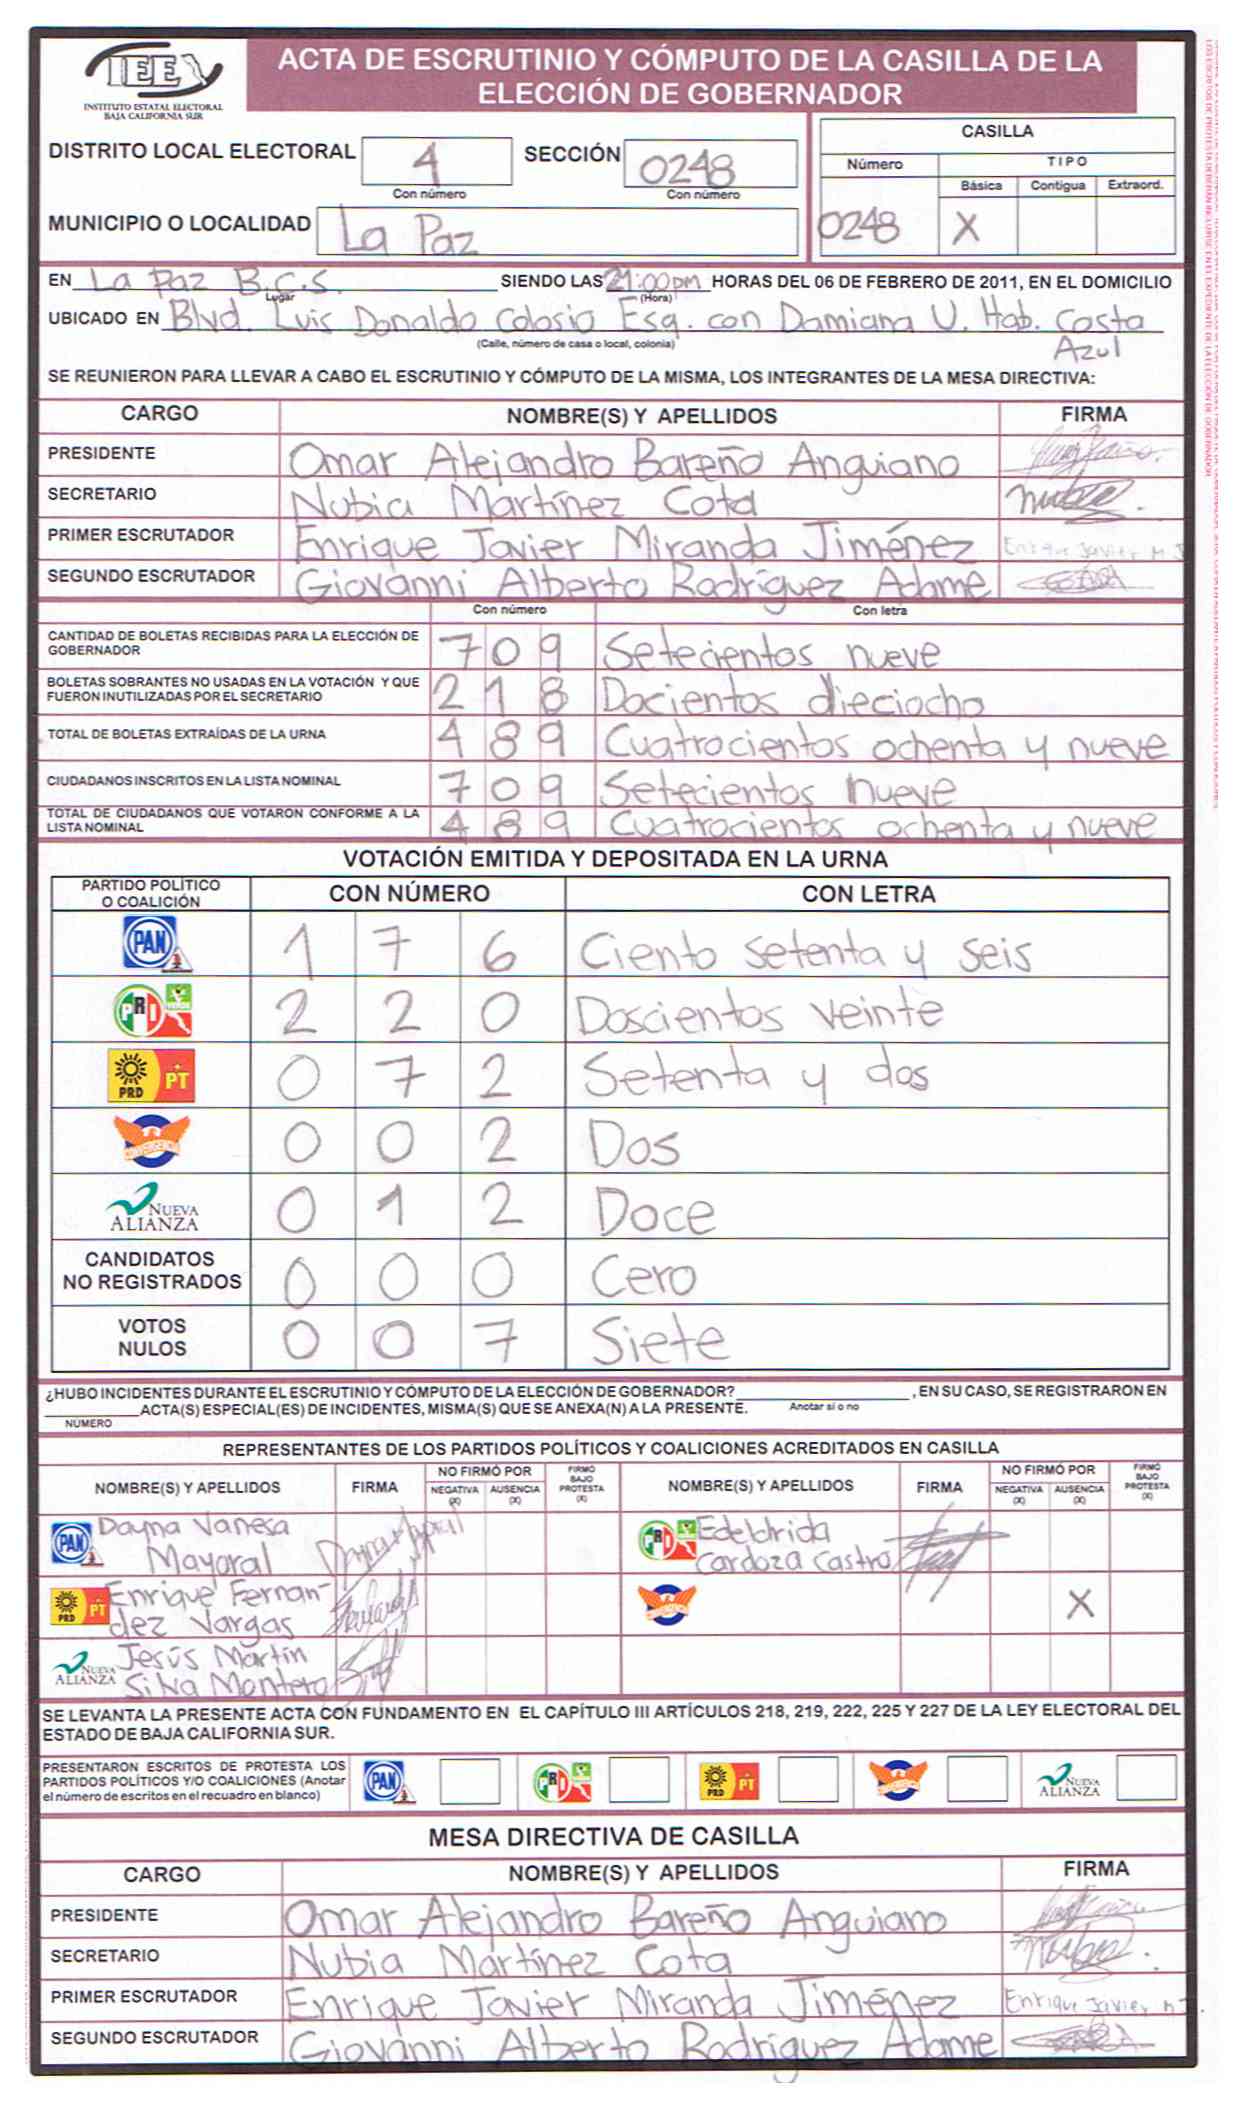 IEE
INSTITUTO ESTATAL ELECTORAL
BAJA CALIFORNIA SUR
ACTA DE ESCRUTINIO Y CÓMPUTO DE LA CASILLA DE LA
ELECCIÓN DE GOBERNADOR
DISTRITO LOCAL ELECTORAL 4 SECCIÓN 0248
Con número Con número
MUNICIPIO O LOCALIDAD La Paz
CASILLA
Número TIPO
Básica Contigua Extraord.
0248 X
EN La Paz B.C.S. SIENDO LAS 21:00pm HORAS DEL 06 DE FEBRERO DE 2011, EN EL DOMICILIO
Lugar (Hora)
UBICADO EN Blvd. Luis Donaldo Colosio Esq. con Damiana U. Hab. Costa
(Calle, número de casa o local, colonia) Azul
SE REUNIERON PARA LLEVAR A CABO EL ESCRUTINIO Y CÓMPUTO DE LA MISMA, LOS INTEGRANTES DE LA MESA DIRECTIVA:
CARGO NOMBRE(S) Y APELLIDOS FIRMA
PRESIDENTE Omar Alejandro Bareño Anguiano
SECRETARIO Nubia Martínez Cota
PRIMER ESCRUTADOR Enrique Javier Miranda Jiménez Enrique Javier M J
SEGUNDO ESCRUTADOR Giovanni Alberto Rodríguez Adame
Con número Con letra
CANTIDAD DE BOLETAS RECIBIDAS PARA LA ELECCIÓN DE
GOBERNADOR 709 Setecientos nueve
BOLETAS SOBRANTES NO USADAS EN LA VOTACIÓN Y QUE
FUERON INUTILIZADAS POR EL SECRETARIO 218 Docientos dieciocho
TOTAL DE BOLETAS EXTRAÍDAS DE LA URNA 489 Cuatrocientos ochenta y nueve
CIUDADANOS INSCRITOS EN LA LISTA NOMINAL 709 Setecientos nueve
TOTAL DE CIUDADANOS QUE VOTARON CONFORME A LA
LISTA NOMINAL 489 Cuatrocientos ochenta y nueve
VOTACIÓN EMITIDA Y DEPOSITADA EN LA URNA
PARTIDO POLÍTICO
O COALICIÓN CON NÚMERO CON LETRA
PAN 1 7 6 Ciento setenta y seis
PRI VERDE 2 2 0 Doscientos veinte
PRD PT 0 7 2 Setenta y dos
CONVERGENCIA 0 0 2 Dos
NUEVA ALIANZA 0 1 2 Doce
CANDIDATOS
NO REGISTRADOS 0 0 0 Cero
VOTOS
NULOS 0 0 7 Siete
¿HUBO INCIDENTES DURANTE EL ESCRUTINIO Y CÓMPUTO DE LA ELECCIÓN DE GOBERNADOR? , EN SU CASO, SE REGISTRARON EN
ACTA(S) ESPECIAL(ES) DE INCIDENTES, MISMA(S) QUE SE ANEXA(N) A LA PRESENTE. Anotar sí o no
NÚMERO
REPRESENTANTES DE LOS PARTIDOS POLÍTICOS Y COALICIONES ACREDITADOS EN CASILLA
NOMBRE(S) Y APELLIDOS FIRMA NO FIRMÓ POR NEGATIVA (X) AUSENCIA (X) FIRMÓ BAJO PROTESTA (X) NOMBRE(S) Y APELLIDOS FIRMA NO FIRMÓ POR NEGATIVA (X) AUSENCIA (X) FIRMÓ BAJO PROTESTA (X)
PAN Dayna Vanesa PRI Edelchrida
Mayoral Cardoza Castro
PRD PT Enrique Fernan CONVERGENCIA X
dez Vargas
NUEVA ALIANZA Jesús Martín
Silva Montero
SE LEVANTA LA PRESENTE ACTA CON FUNDAMENTO EN EL CAPÍTULO III ARTÍCULOS 218, 219, 222, 225 Y 227 DE LA LEY ELECTORAL DEL
ESTADO DE BAJA CALIFORNIA SUR.
PRESENTARON ESCRITOS DE PROTESTA LOS
PARTIDOS POLÍTICOS Y/O COALICIONES (Anotar
el número de escritos en el recuadro en blanco) PAN PRI PRD PT CONVERGENCIA NUEVA ALIANZA
MESA DIRECTIVA DE CASILLA
CARGO NOMBRE(S) Y APELLIDOS FIRMA
PRESIDENTE Omar Alejandro Bareño Anguiano
SECRETARIO Nubia Martínez Cota
PRIMER ESCRUTADOR Enrique Javier Miranda Jiménez Enrique Javier M J.
SEGUNDO ESCRUTADOR Giovanni Alberto Rodríguez Adame